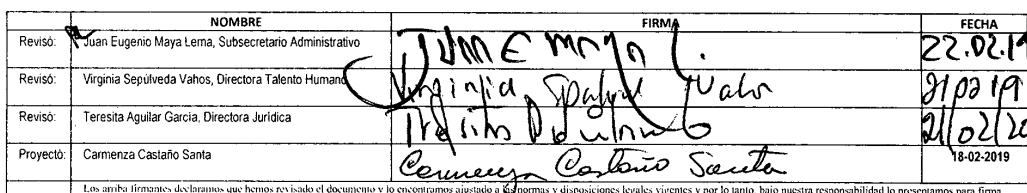 NOMBRE FIRMA FECHA
Revisó: Juan Eugenio Maya Lema, Subsecretario Administrativo JUAN E MAYA L. 22.02.19
Revisó: Virginia Sepúlveda Vahos, Directora Talento Humano Virginia Vahos 21 02 19
Revisó: Teresita Aguilar Garcia, Directora Jurídica Teresita 21/02/20
Proyectó: Carmenza Castaño Santa Carmenza Castaño Santa 18-02-2019
Los arriba firmantes declaramos que hemos revisado el documento y lo encontramos ajustado a las normas y disposiciones legales vigentes y por lo tanto, bajo nuestra responsabilidad lo presentamos para firma